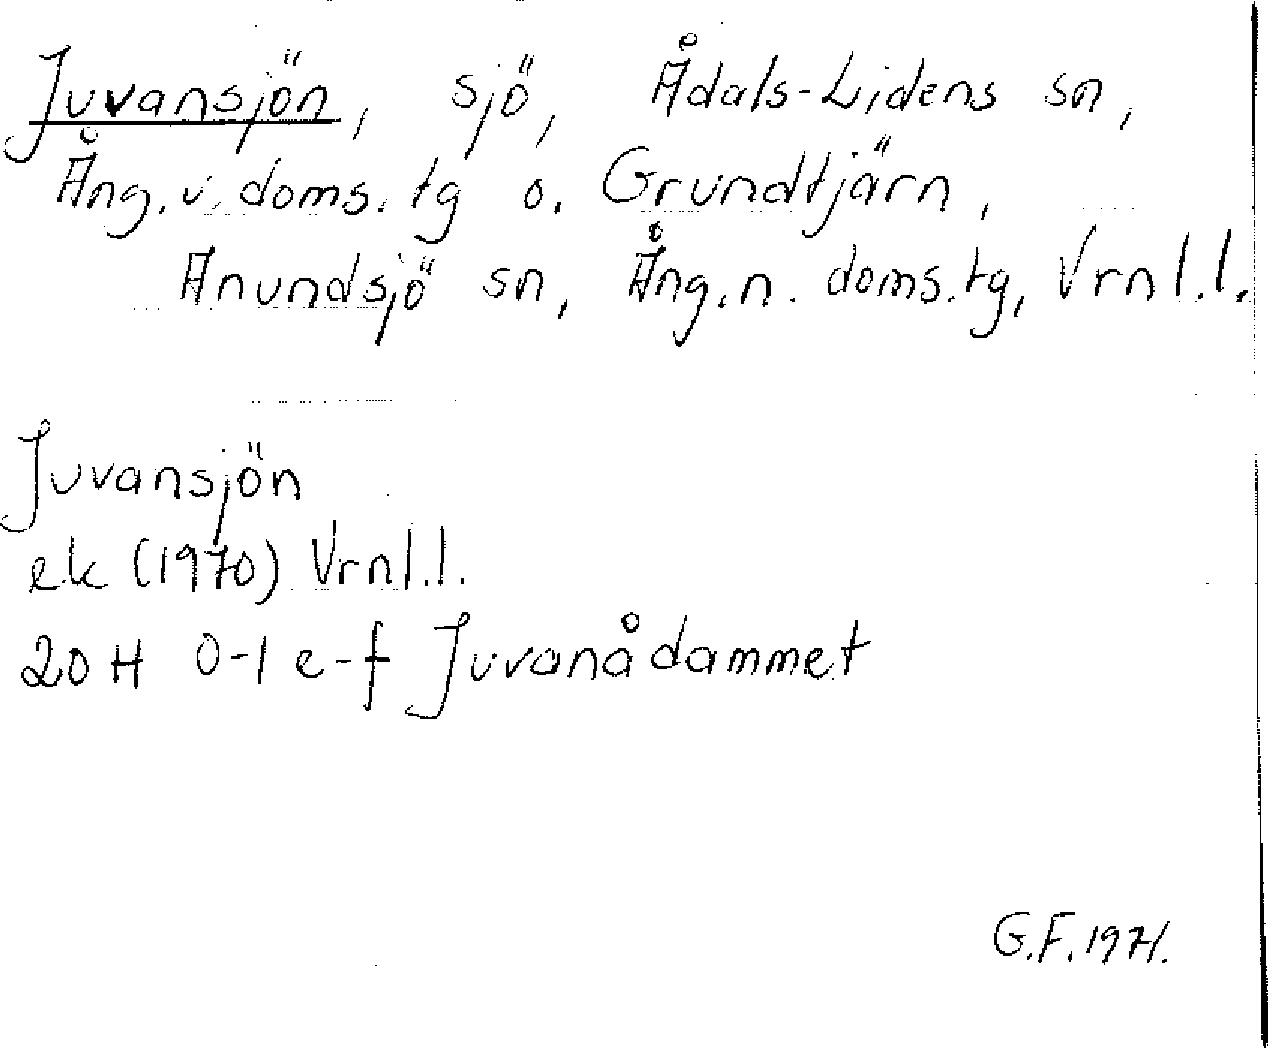 Juvansjön, sjö, Ådals-Lidens sn,
Ång. v. doms. tg o. Grundtjärn,
Anundsjö sn, Ång. n. doms. tg, Vrnl. l.
Juvansjön
ek (1970) Vrnl. l.
20 H 0-1 e-f Juvanådammet
G.F. 1971.